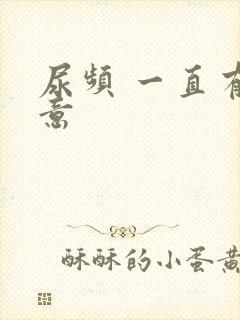 尿频 一直
意
酥酥的小蛋黄